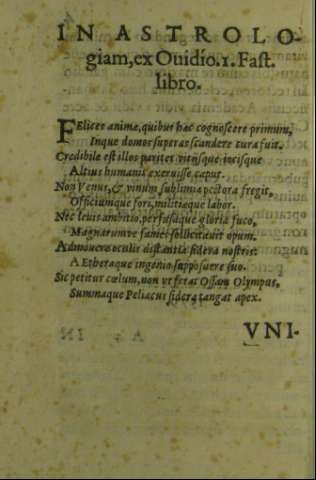 IN ASTROLO-
giam, ex Ouidio. 1. Fast.
libro.
FElices animæ, quibus hæc cognoscere primum,
Inque domos superas scandere cura fuit.
Credibile est illos pariter vitiisque iocisque
Altius humanis exeruisse caput.
Non Venus, & vinum sublimia pectora fregit,
Officiumque fori, militiæque labor.
Nec leuis ambitio, perfusaque gloria fuco,
Magnarumve fames sollicitauit opum.
Admouere oculis distantia sidera nostris:
AEtheraque ingenio supposuere suo.
Sic petitur cœlum, non vt ferat Ossam Olympus,
Summaque Peliacus sidera tangat apex.
VNI-